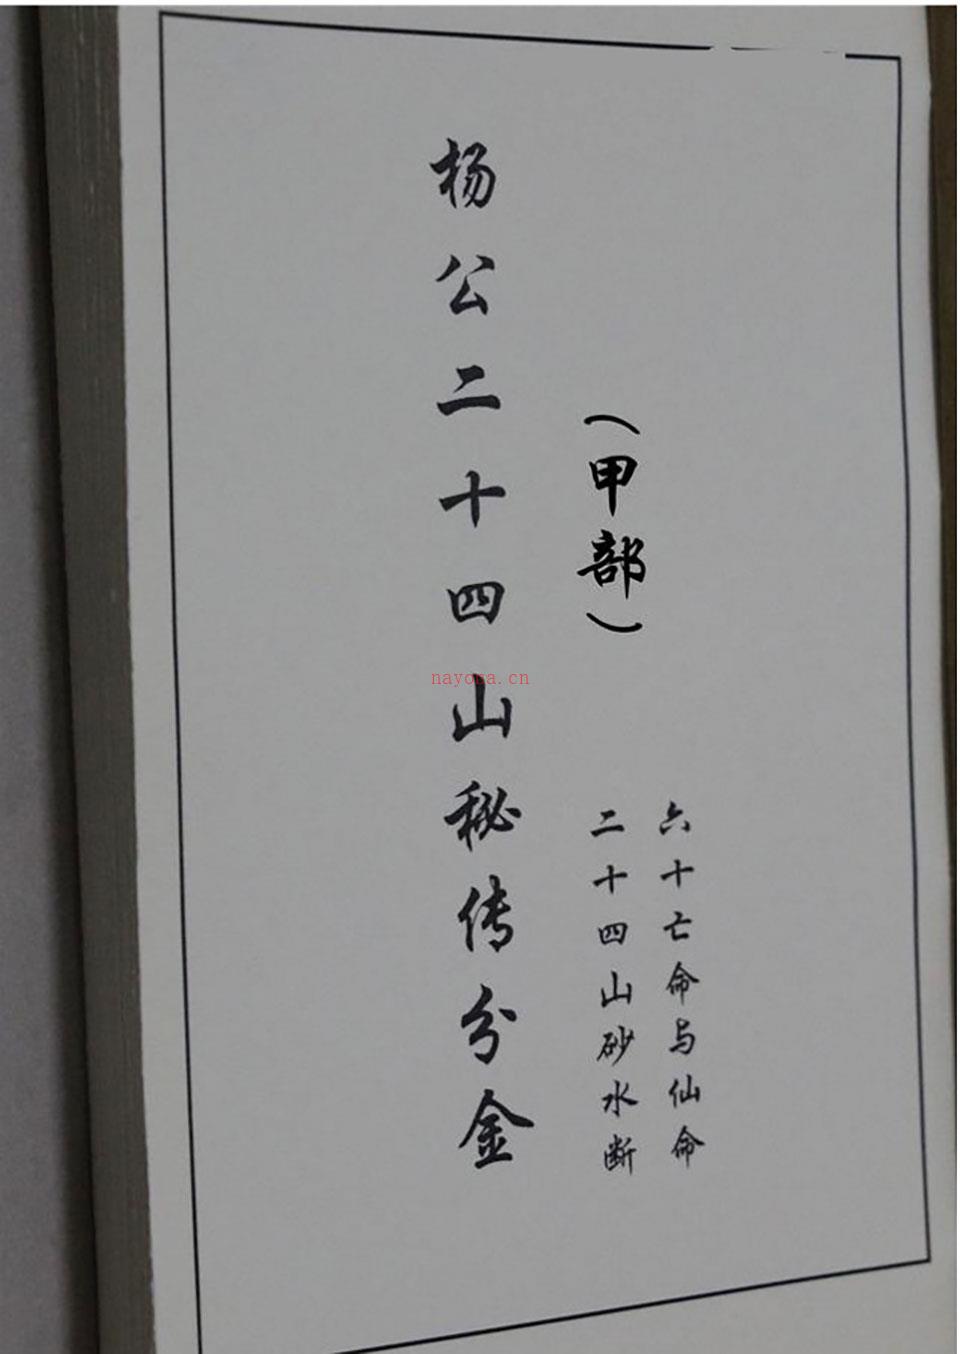 六十亡命与仙命
二十四山砂水断
（甲部）
杨公二十四山秘传分金
nayona.cn